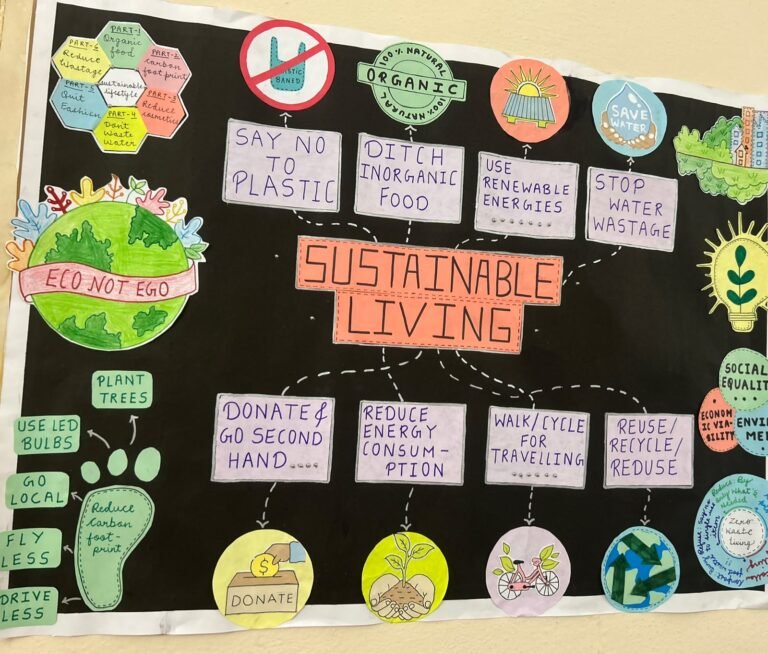 PART-1
Organic
food
PART-6
Reduce
Wastage
PART-2
Carbon
foot print
Sustainable
lifestyle
PART-5
Quit
Fashion
PART-3
Reduce
cosmetics
PART-4
Dont
Waste
Water
PLASTIC
BANED
100% NATURAL
ORGANIC
100% NATURAL
SAVE
WATER
SAY NO
TO
PLASTIC
DITCH
INORGANIC
FOOD
USE
RENEWABLE
ENERGIES
STOP
WATER
WASTAGE
ECO NOT EGO
SUSTAINABLE
LIVING
SOCIAL
EQUALIT
ECONOM
IC VIA-
BILITY
ENVI
ME
PLANT
TREES
USE LED
BULBS
GO
LOCAL
FLY
LESS
DRIVE
LESS
Reduce
Carbon
foot-
print
DONATE &
GO SECOND
HAND....
REDUCE
ENERGY
CONSUM-
PTION
WALK/CYCLE
FOR
TRAVELLING
REUSE/
RECYCLE/
REDUSE
$
DONATE
Zero
Waste
living
Reduce: Buy
only what's
needed